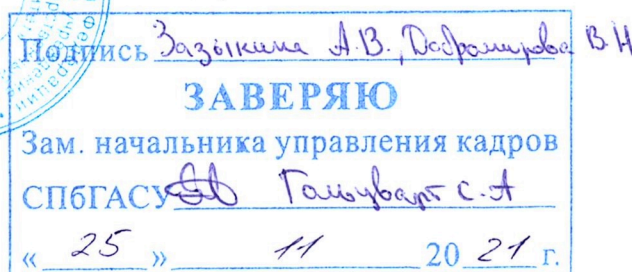 Подпись Зазыкина А.В., Добромирова В.Н
ЗАВЕРЯЮ
Зам. начальника управления кадров
СПбГАСУ С.А
« 25 » 11 20 21 г.